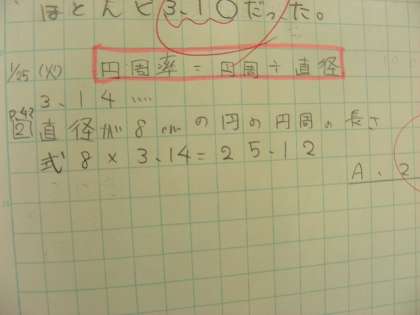 ほとんど3.1○だった。
1/25(火) 円周率=円周÷直径
3.14….
P.42
2 直径が8cmの円の円周の長さ
式 8×3.14=25.12
A.2